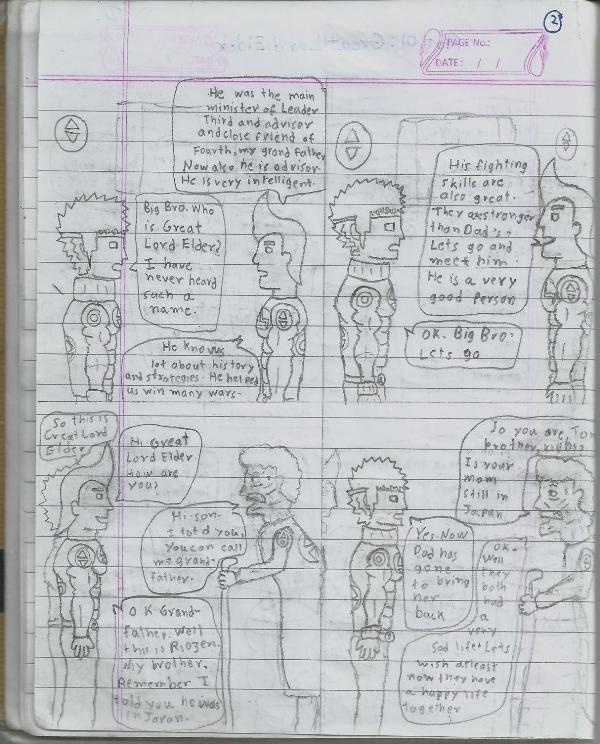 2
PAGE No.:
DATE: / /
Big Bro. Who
is Great
Lord Elder?
I have
never heard
such a
name.
He was the main
minister of Leader
Third and advisor
and close friend of
Fourth, my grand father
Now also he is advisor.
He is very intelligent.
He knows
lot about history
and strategies. He helped
us win many wars.
His fighting
skills are
also great.
They are stronger
than Dad's.
Lets go and
meet him.
He is a very
good person
OK. Big Bro.
Lets go
So this is
Great Lord
Elder.
Hi Great
Lord Elder
How are
you?
Hi son.
I told you,
you can call
me grand-
father.
OK Grand-
father. Well
this is Riozen.
My brother.
Remember I
told you he was
in Japan.
So you are Tor
brother, right?
Is your
mom
still in
Japan
Yes. Now
Dad has
gone
to bring
her
back
OK.
Well
they
both
had
a
very
Sad life. Lets
wish atleast
now they have
a happy life
together